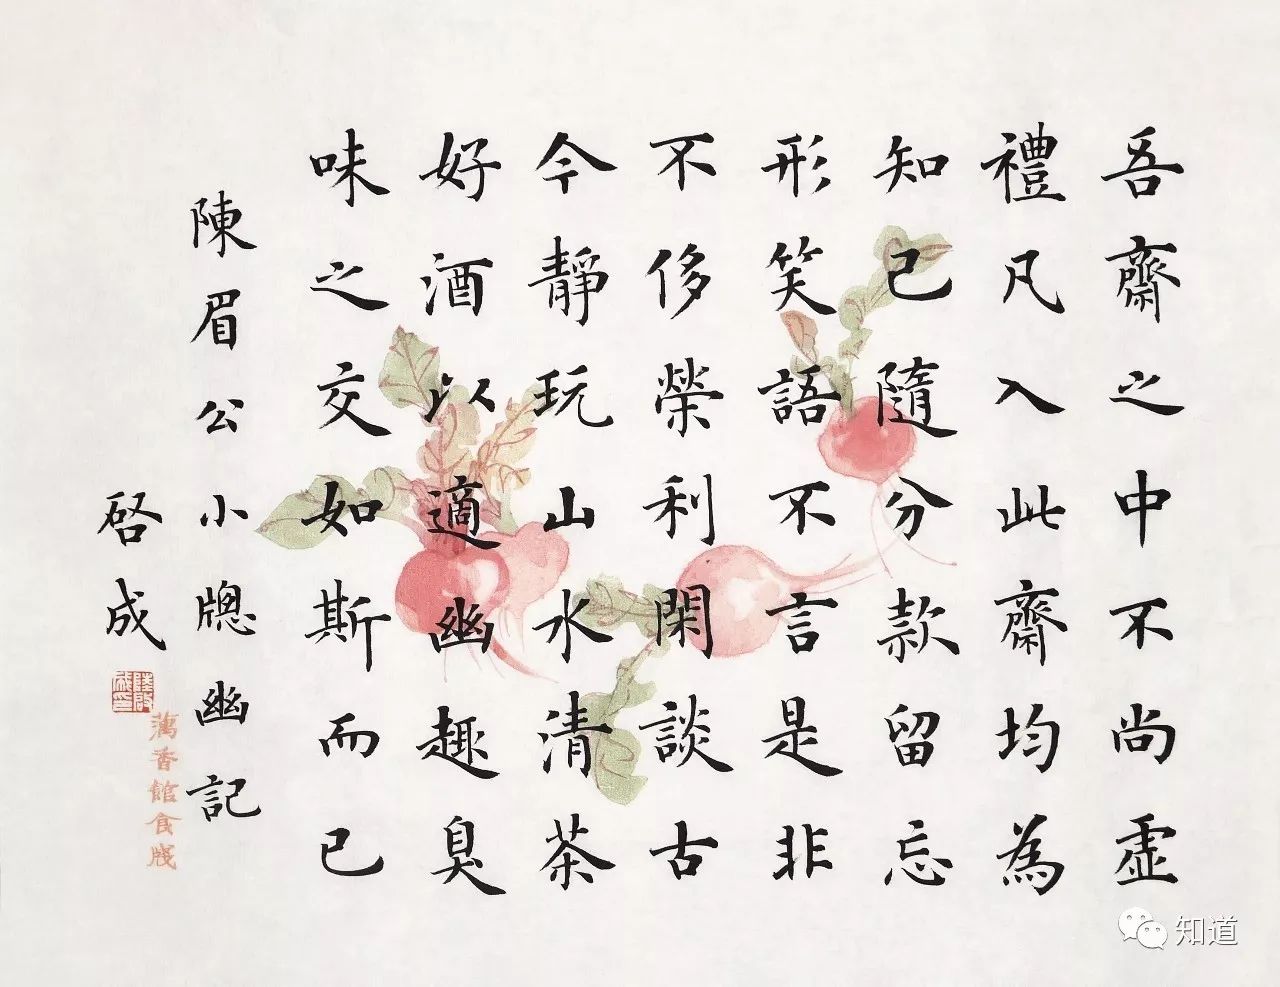 吾齋之中不尚虛
禮凡入此齋均為
知己隨分款留忘
形笑語不言是非
不侈榮利閑談古
今靜玩山水清茶
好酒以適幽趣臭
味之交如斯而已
陳眉公小牕幽記
啓成
陸啟成印
蕅香館食牋
知道